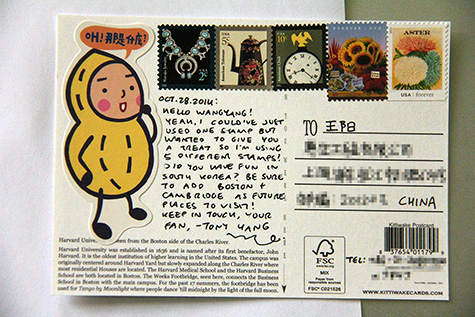 OH! 那是什底?
2¢
5¢
10¢
FOREVER
ASTER
USA / forever
OCT. 28. 2014:
HELLO WANGYANG!
YEAH, I COULD'VE JUST
USED ONE STAMP BUT
WANTED TO GIVE YOU
A TREAT SO I'M USING
5 DIFFERENT STAMPS!
DID YOU HAVE FUN IN
SOUTH KOREA? BE SURE
TO ADD BOSTON +
CAMBRIDGE AS FUTURE
PLACES TO VISIT!
KEEP IN TOUCH, YOUR
FAN, -TONY YANG
TO 王阳
CHINA
TEL:
Harvard Univ een from the Boston side of the Charles River.
Harvard University was established in 1636 and is named after its first benefactor, John
Harvard. It is the oldest institution of higher learning in the United States. The campus was
originally centered around Harvard Yard but slowly expanded along the Charles River where
most residential Houses are located. The Harvard Medical School and the Harvard Business
School are both located in Boston. The Weeks Footbridge, seen here, connects the Business
School in Boston with the main campus. For the past 17 summers, the footbridge has been
used for Tango by Moonlight where people dance 'till midnight by the light of the full moon.
FSC
www.fsc.org
MIX
Paper from
responsible sources
FSC® C021526
Kittiwake Postcard
37654 01179
WWW.KITTIWAKECARDS.COM